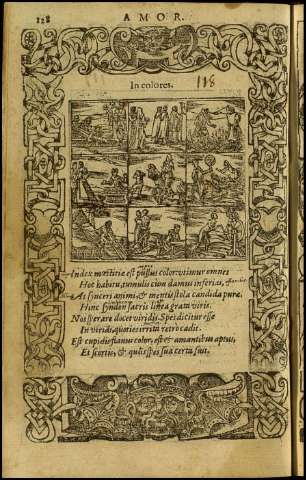 128 AMOR.
In colores. 118
Index mœstitiæ est pullus color: vtimur omnes
Hoc habitu, tumulis cùm damus inferias,
At synceri animi, & mentis stola candida puræ,
Hinc syndon sacris linea grata viris.
Nos sperare docet viridis. Spes dicitur esse
In viridi, quoties irrita retro cadit.
Est cupidis flauus color, est & amantibus aptus,
Et scortis, & queis spes sua certa fuit.